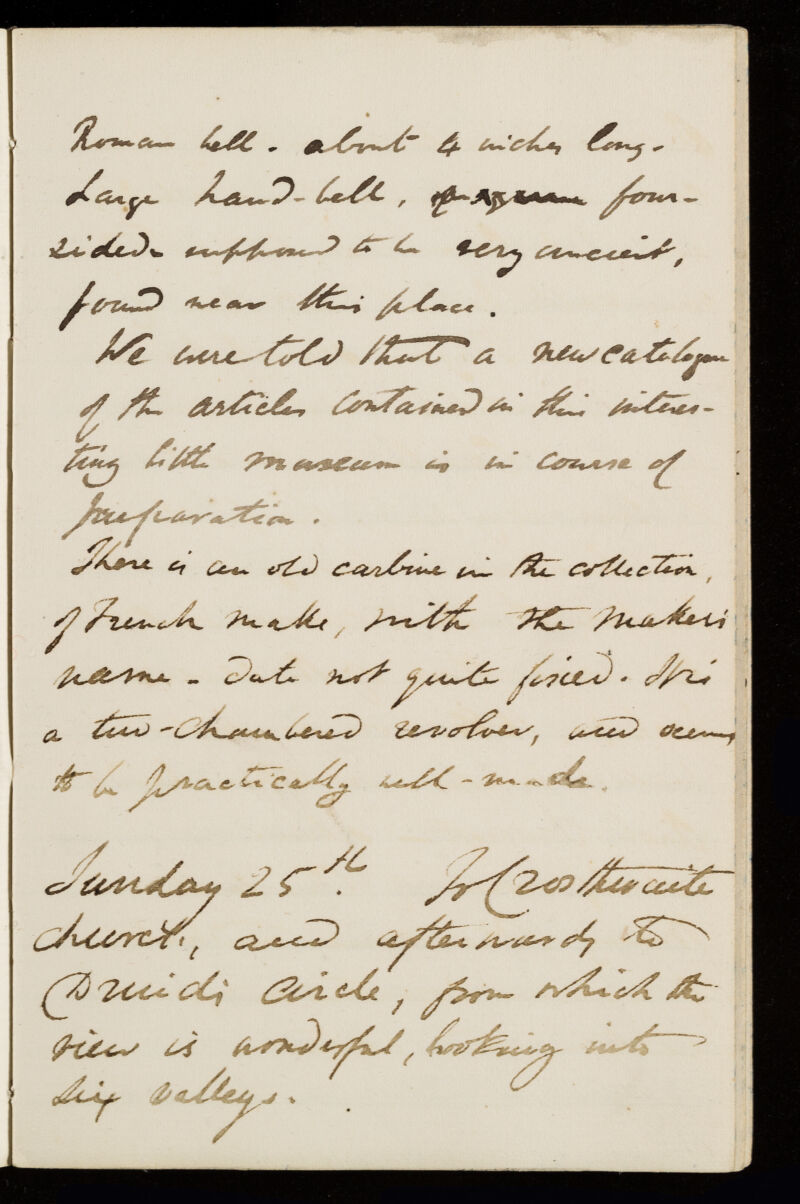 Roman bell - about 4 inches long -
Large hand-bell, four-
sided - supposed to be very ancient,
found near this place.
We were told that a new catalogue
of the articles contained in this interes-
ting little museum is in course of
preparation.
There is an old carbine in the collection,
of French make, with the maker's
name - date not quite fixed. It is
a two-chambered revolver, and seems
to be practically well-made.
Sunday 25th. To Crosthwaite
church, and afterwards to
Druids Circle, from which the
view is wonderful, looking into
six valleys.